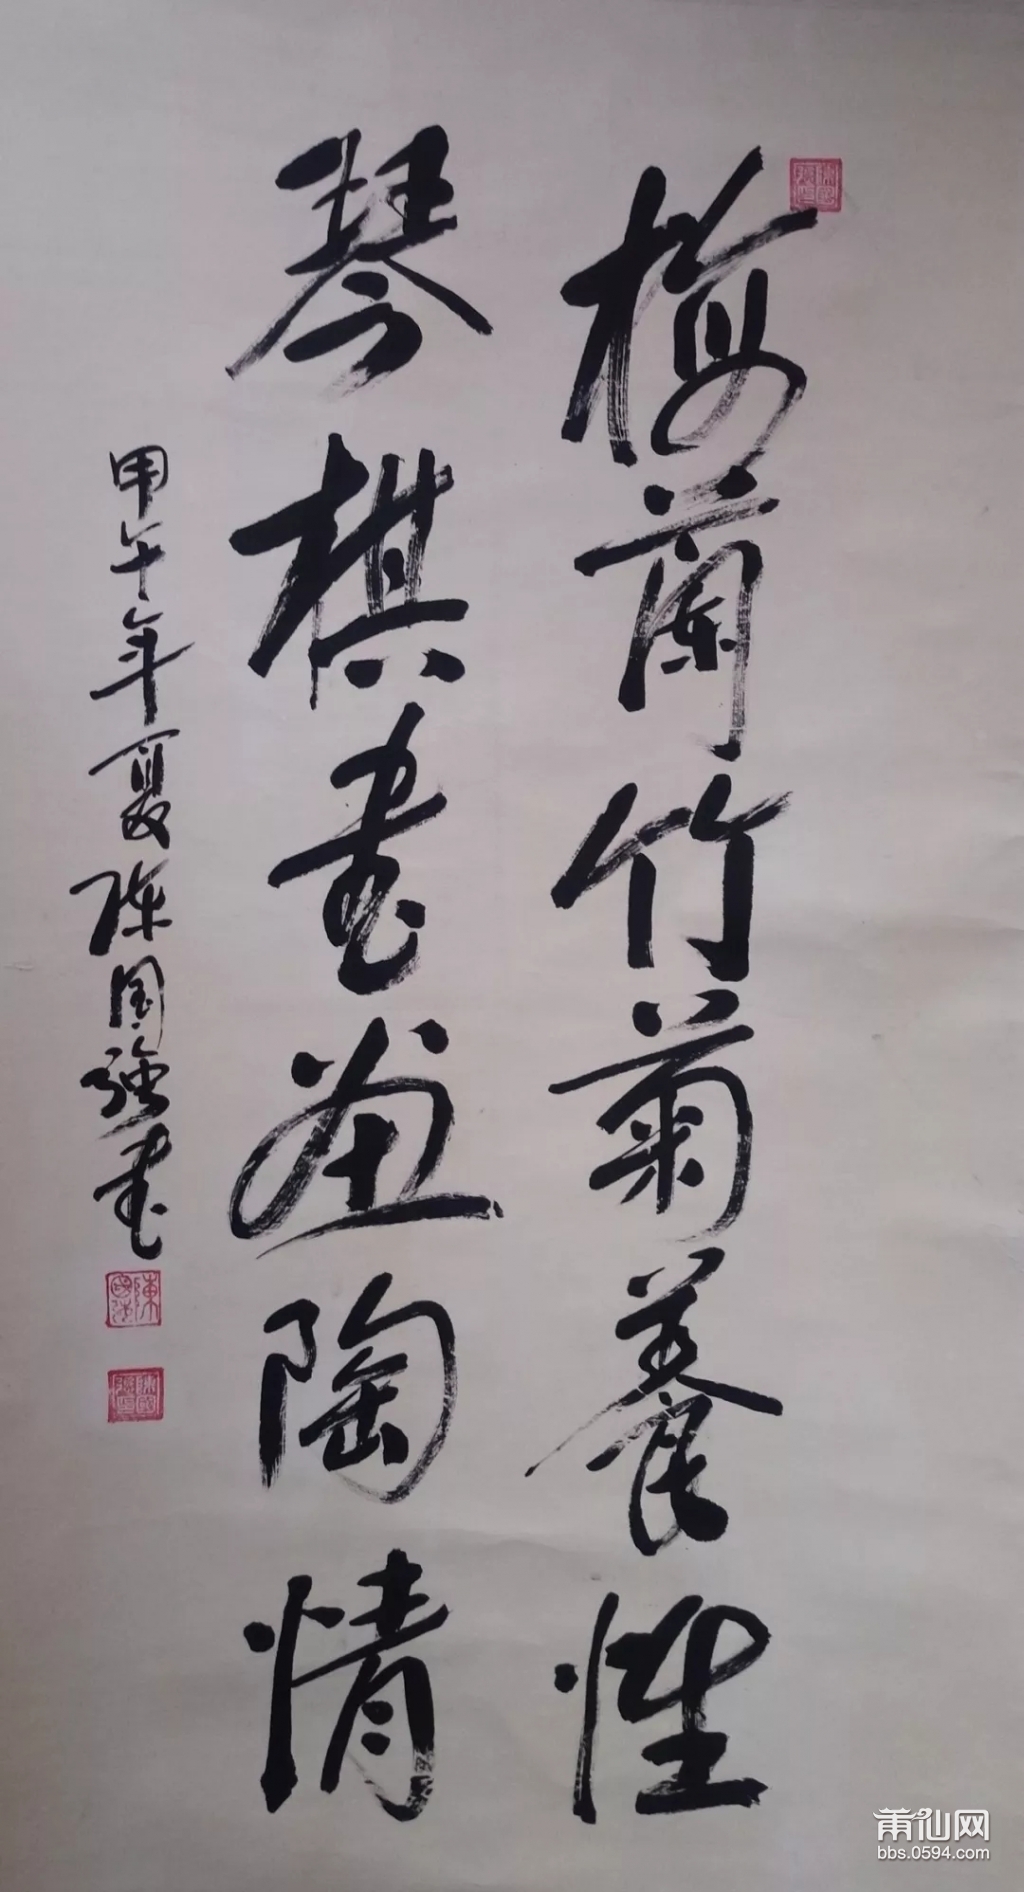 梅蘭竹菊養性
琴棋書畫陶情
甲午年夏陈国強書
莆仙网
bbs.0594.com